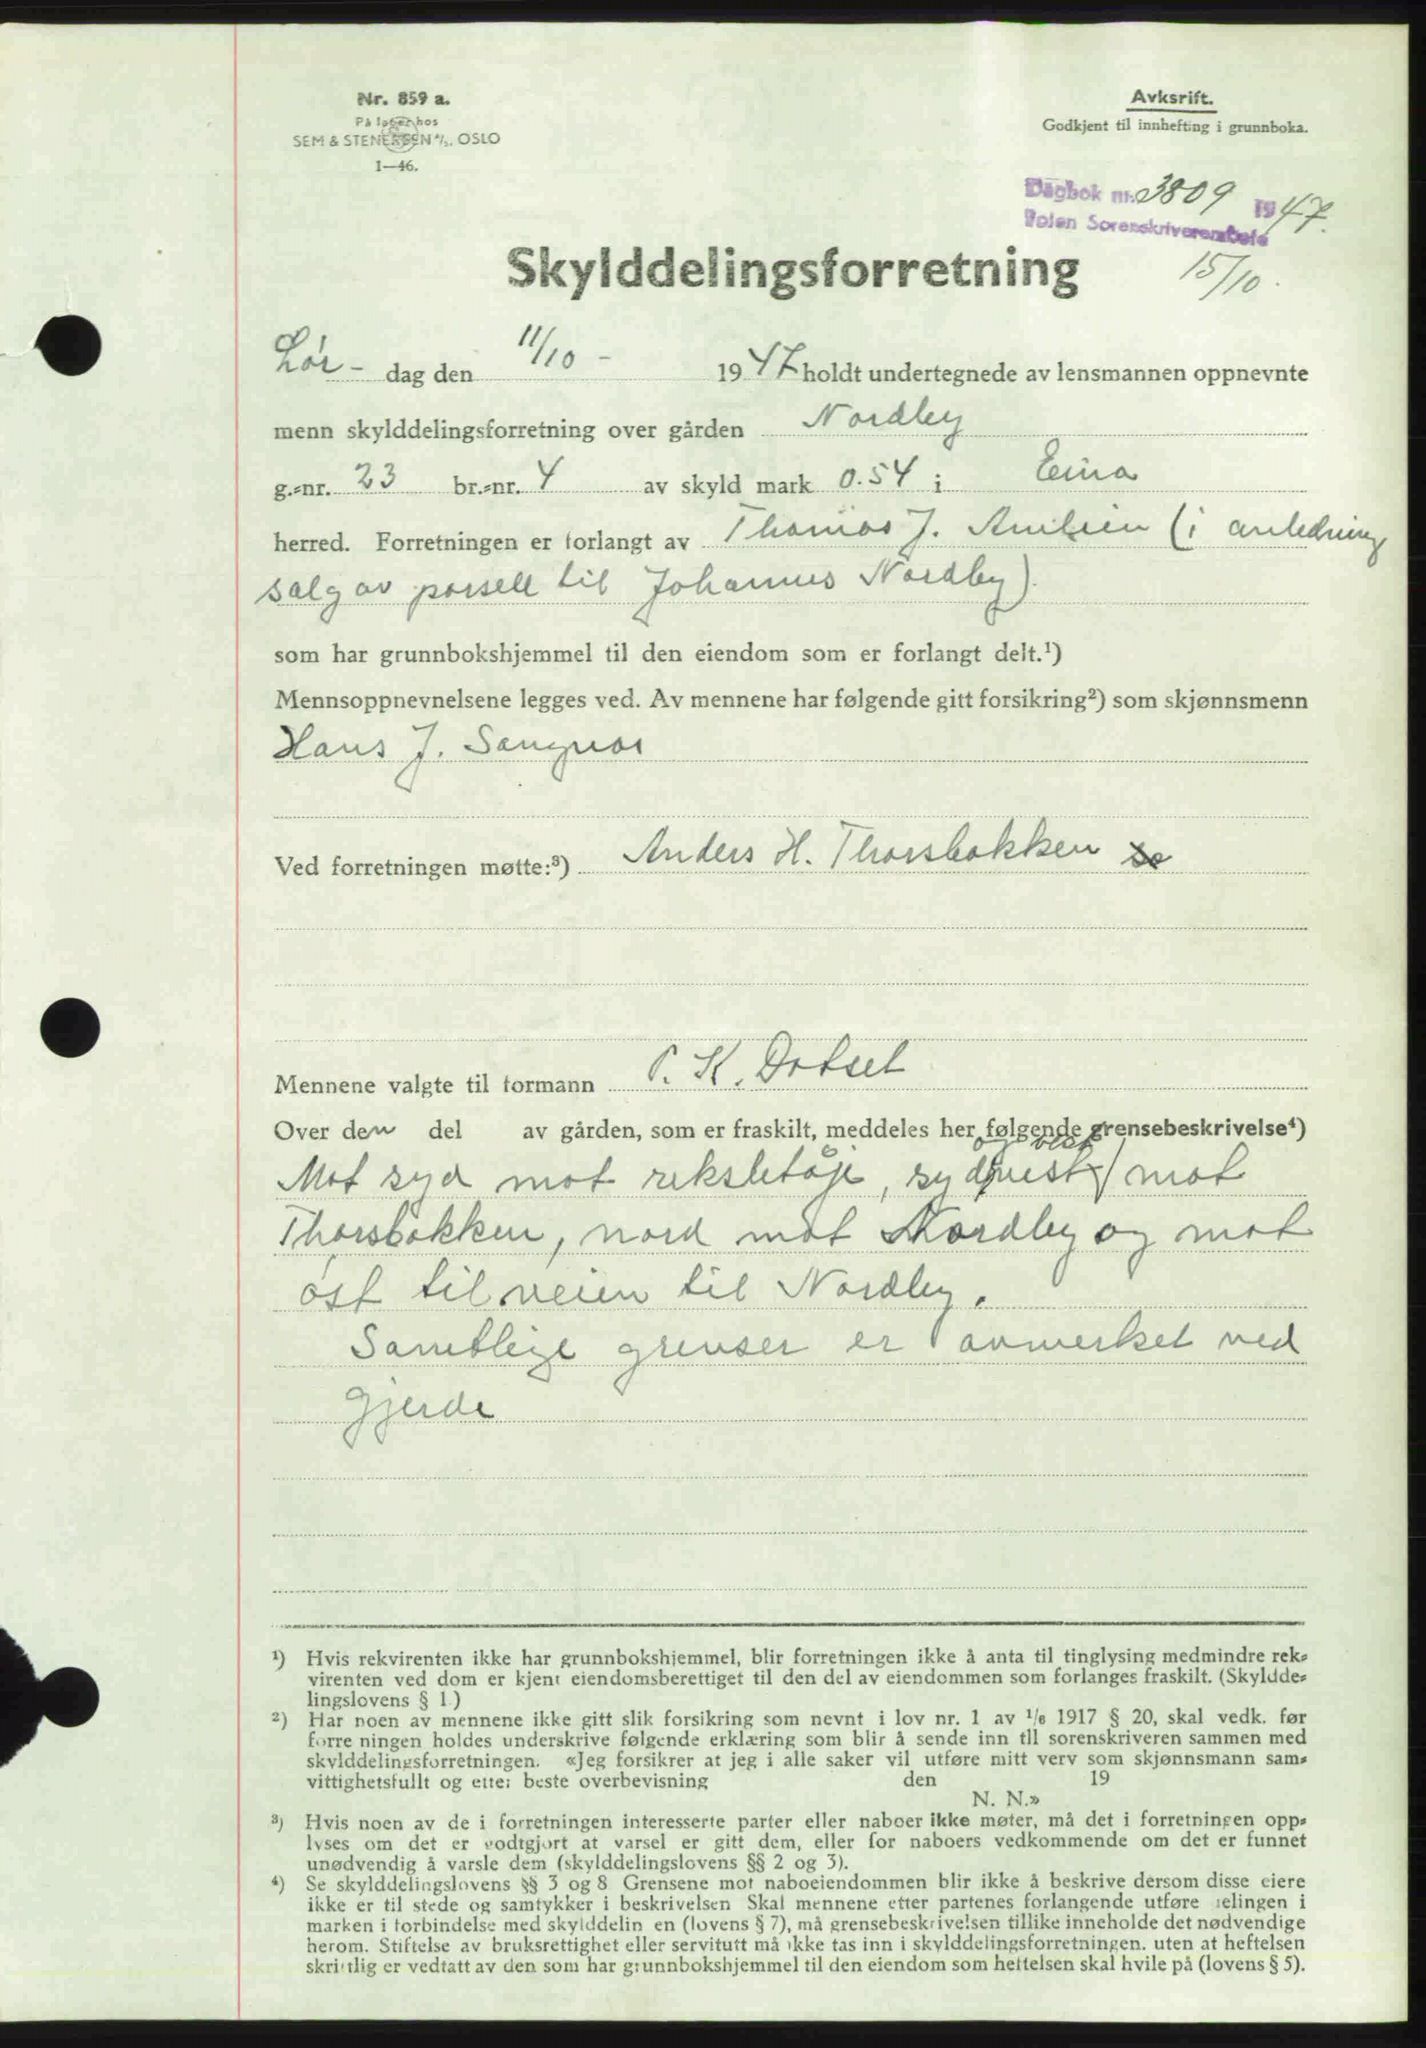 Nr. 859 a.
På lager hos
SEM & STENERSEN A/S, OSLO
1—46.
Avksrift.
Godkjent til innhefting i grunnboka.
Dagbok nr. 3809 1947.
Toten Sorenskriverembete
15/10.
Skylddelingsforretning
Lør- dag den 11/10 - 1947 holdt undertegnede av lensmannen oppnevnte
menn skylddelingsforretning over gården Nordby
g.=nr. 23 br.=nr. 4 av skyld mark 0.54 i Eina
herred. Forretningen er forlangt av Thomas J. (i anledning
salg av parsell til Johannes Nordby).
som har grunnbokshjemmel til den eiendom som er forlangt delt.¹)
Mennsoppnevnelsene legges ved. Av mennene har følgende gitt forsikring²) som skjønnsmenn
Hans J. Sangnæs
Ved forretningen møtte:³) Anders H. Thorsbakken se
Mennene valgte til formann P. K. Dotset
Over den del av gården, som er fraskilt, meddeles her følgende grensebeskrivelse⁴)
og vest
Mot syd mot , sydvest mot
Thorsbakken, nord mot Nordby og mot
øst til veien til Nordby.
Samtlige grenser er avmerket ved
gjerde
¹) Hvis rekvirenten ikke har grunnbokshjemmel, blir forretningen ikke å anta til tinglysing medmindre rek=
virenten ved dom er kjent eiendomsberettiget til den del av eiendommen som forlanges fraskilt. (Skyldde=
lingslovens § 1.)
²) Har noen av mennene ikke gitt slik forsikring som nevnt i lov nr. 1 av 1/6 1917 § 20, skal vedk. før
forre ningen holdes underskrive følgende erklæring som blir å sende inn til sorenskriveren sammen med
skylddelingsforretningen. «Jeg forsikrer at jeg i alle saker vil utføre mitt verv som skjønnsmann sam=
vittighetsfullt og etter beste overbevisning den 19
N. N.»
³) Hvis noen av de i forretningen interesserte parter eller naboer ikke møter, må det i forretningen opp=
lyses om det er godtgjort at varsel er gitt dem, eller for naboers vedkommende om det er funnet
unødvendig å varsle dem (skylddelingslovens §§ 2 og 3).
⁴) Se skylddelingslovens §§ 3 og 8 Grensene mot naboeiendommen blir ikke å beskrive dersom disse eiere
ikke er til stede og samtykker i beskrivelsen Skal mennene etter partenes forlangende utføre delingen i
marken i forbindelse med skylddelin en (lovens § 7), må grensebeskrivelsen tillike inneholde det nødvendige
herom. Stiftelse av bruksrettighet eller servitutt må ikke tas inn i skylddelingsforretningen. uten at heftelsen
skriftlig er vedtatt av den som har grunnbokshjemmel til den eiendom som heftelsen skal hvile på (lovens § 5).